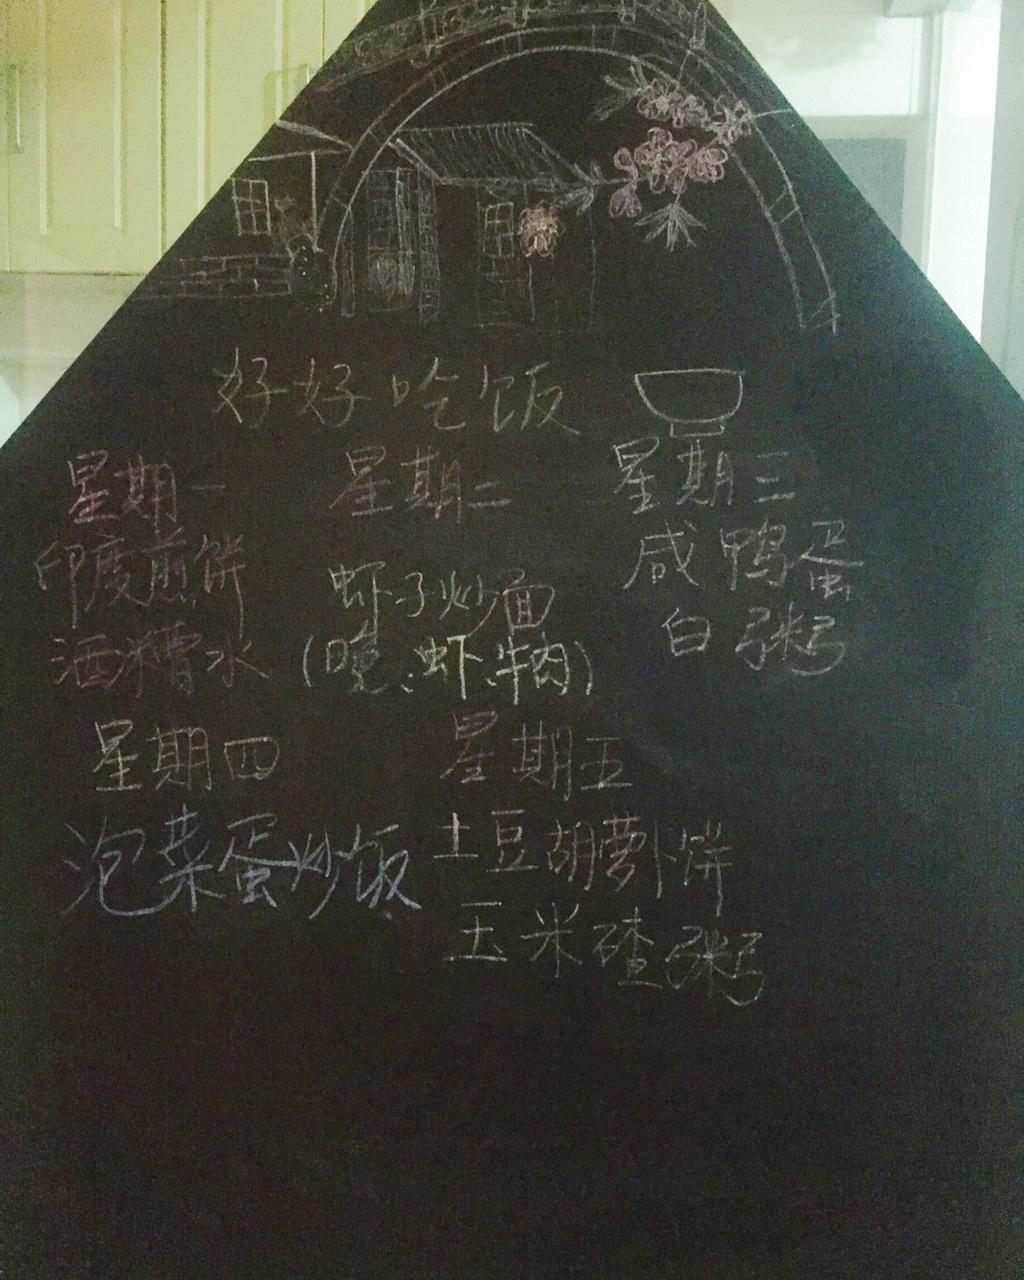 好好吃饭
星期一
印度煎饼
酒糟水
星期二
虾子炒面
(晚:虾、牛肉)
星期三
咸鸭蛋
白粥
星期四
泡菜蛋炒饭
星期五
土豆胡萝卜饼
玉米碴粥